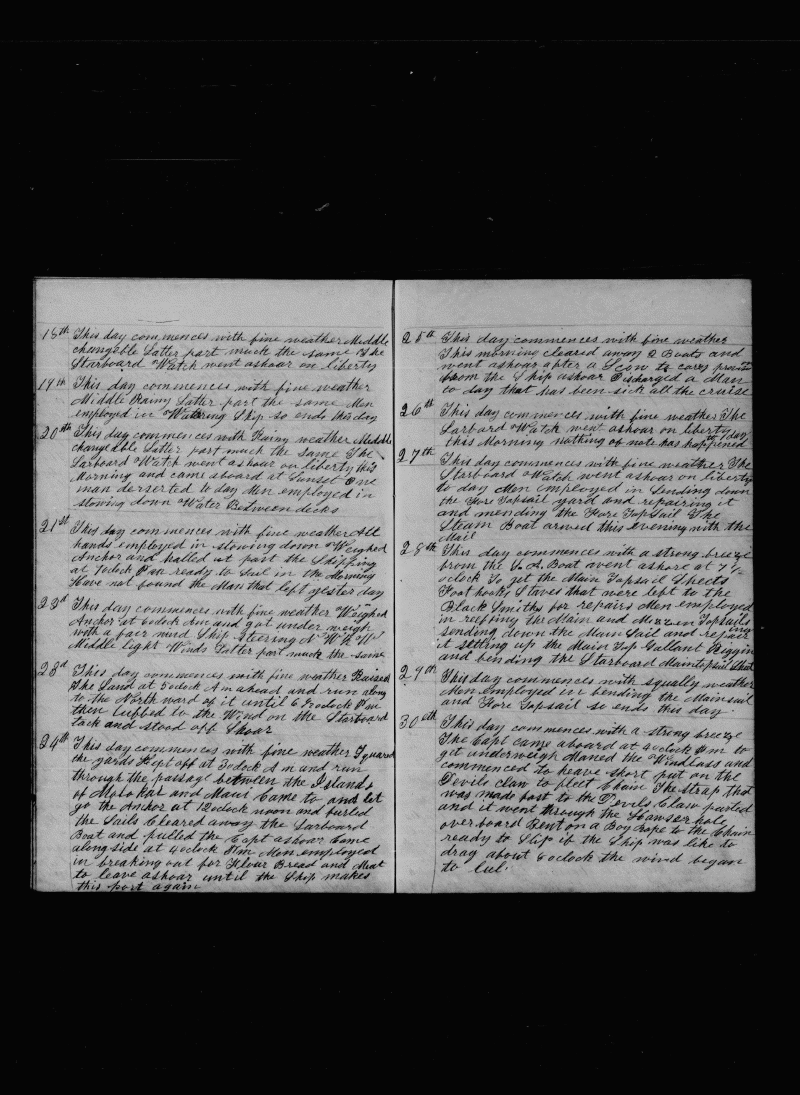 18th This day commences with fine weather Middle
changable Latter part much the same The
Starboard Watch went ashoar on liberty
19th This day commences with fine weather
Middle Rainy Latter part the same Men
employed in Watering Ship so ends this day
20th This day commences with Rainy weather Middle
changeable Latter part much the same The
Larboard Watch went ashoar on liberty this
Morning and came aboard at Sunset One
man derserted to day Men employed in
stowing down Water Between decks
21st This day commences with fine weather All
hands employed in stowing down Weighed
Anchor and halled out past the Shipping
at 7oclock P m ready to Sail in the Morning
Have not found the Man that left yester day
22d This day commences with fine weather Weighed
Anchor at 6oclock Am and got under weigh
with a fair wind Ship Steerring N W
Middle light Winds Latter part much the same
23d This day commences with fine weather Raised
the Land at 5oclock A m ahead and run along
to the North ward of it until 6 oclock P m
then luffed to the Wind on the Starboard
tack and stood off Shoar
24th This day commences with fine weather Squared
the yards Kept off at 3oclock A m and run
through the passage between the Islands
of Molokai and Maui Came to and let
go the Anchor at 12oclock noon and furled
the Sails Cleared away the Larboard
Boat and pulled the Capt ashoar Came
along side at 4oclock P m Men employed
in breaking out for Flour Bread and Meat
to leave ashoar until the Ship makes
this port again
25th This day commences with fine weather
This morning cleared away 2 Boats and
went ashoar after a Scow to cary
from the Ship ashoar Discharged a Man
to day that has been sick all the cruise
26th This day commences with fine weather The
Larbard Watch went ashoar on liberty
this Morning nothing of note has happened this day
27th This day commences with fine weather The
Starboard Watch went ashoar on liberty
to day Men employed in Sending down
the Fore Topsail yard and repairing it
and mending the Fore TopSail The
Steam Boat arived this evening with the
Mail
28th This day commences with a strong breeze
from the S. A. Boat went ashore at 7 1/2
oclock To get the Main Topsail Sheets
Foot hooks Staves that were left to the
Black Smiths for repairs Men employed
in reefing the Main and Mizzen Topsails
sending down the Main Sail and repairing
it setting up the Main Top Gallant Riggin
and bending the Starboard Maintopsail Sheet
29th This day commences with squally weather
Men employed in bending the Mainsail
and Fore Topsail so ends this day
30eth This day commences with a strong breeze
The Capt came aboard at oclock P m to
get underweigh Maned the Windlass and
commenced to heave short put on the
Devils claw to fleet Chain The strap that
was made fast to the Devils Claw parted
and it went through the Hawserhole
overboard Bent on a Boy Rope to the Chain
ready to Slip if the Ship was like to
drag about 6 oclock the wind began
to lul.